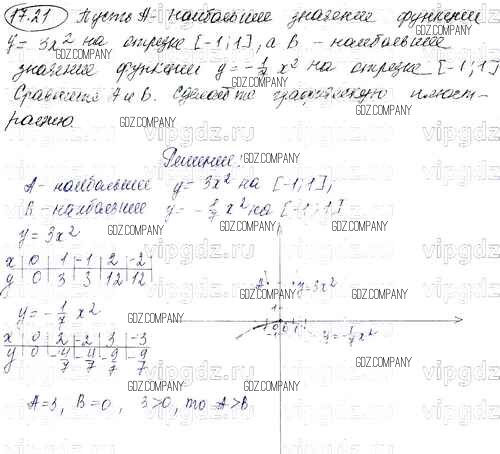 17.21 Пусть А- наибольшее значение функции
y = 3x² на отрезке [-1;1], а В - наибольшее
значение функции y = -1/7 x² на отрезке [-1;1]
Сравните А и В. Сделайте графическую иллюст-
рацию.
Решение:
А- наибольшее y = 3x² на [-1;1],
В - наибольшее y = -1/7 x² на [-1;1]
y = 3x²
x 0 1 -1 2 -2
y 0 3 3 12 12
y = -1/7 x²
x 0 2 -2 3 -3
y 0 -4/7 -4/7 -9/7 -9/7
A
y=3x²
y=-1/7 x²
А=3, В=0, 3>0, то А>В
GDZ.COMPANY
vipgdz.ru